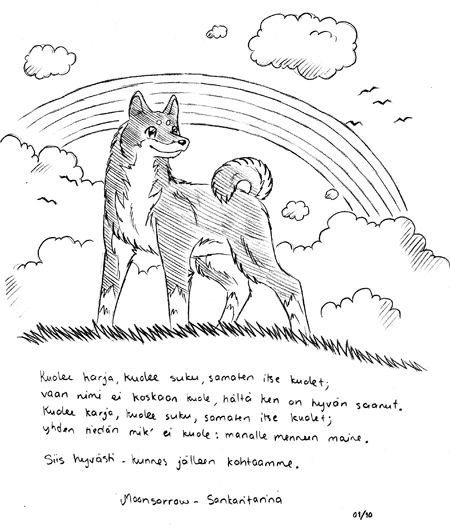 Kuolee harja, kuolee suku, samaten itse kuolet;
vaan nimi ei koskaan kuole, hältä ken on hyvän saanut.
Kuolee karja, kuolee suku, samaten itse kuolet;
yhden tiedän mik' ei kuole: manalle menneen maine.
Siis hyvästi - kunnes jälleen kohtaamme.
Moonsorrow - Sankaritarina
01/10